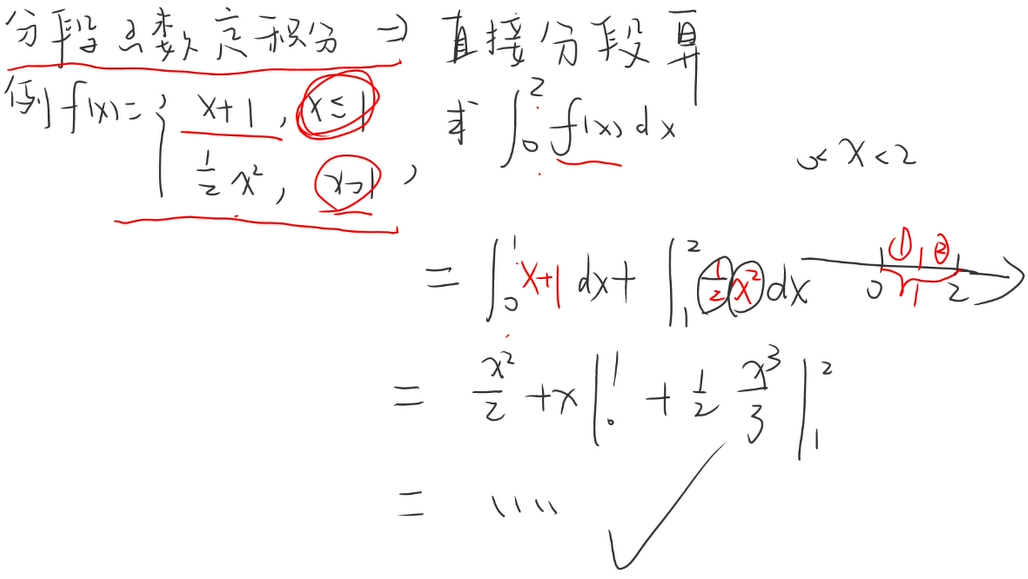 分段函数定积分 ⇒ 直接分段算
例 f(x)= { x+1, x≤1
1/2 x², x>1 , 求 ∫₀² f(x) dx
0<x<2
= ∫₀¹ x+1 dx + ∫₁² 1/2 x² dx
① ②
0 1 2
= x²/2 + x |₀¹ + 1/2 x³/3 |₁²
= ....